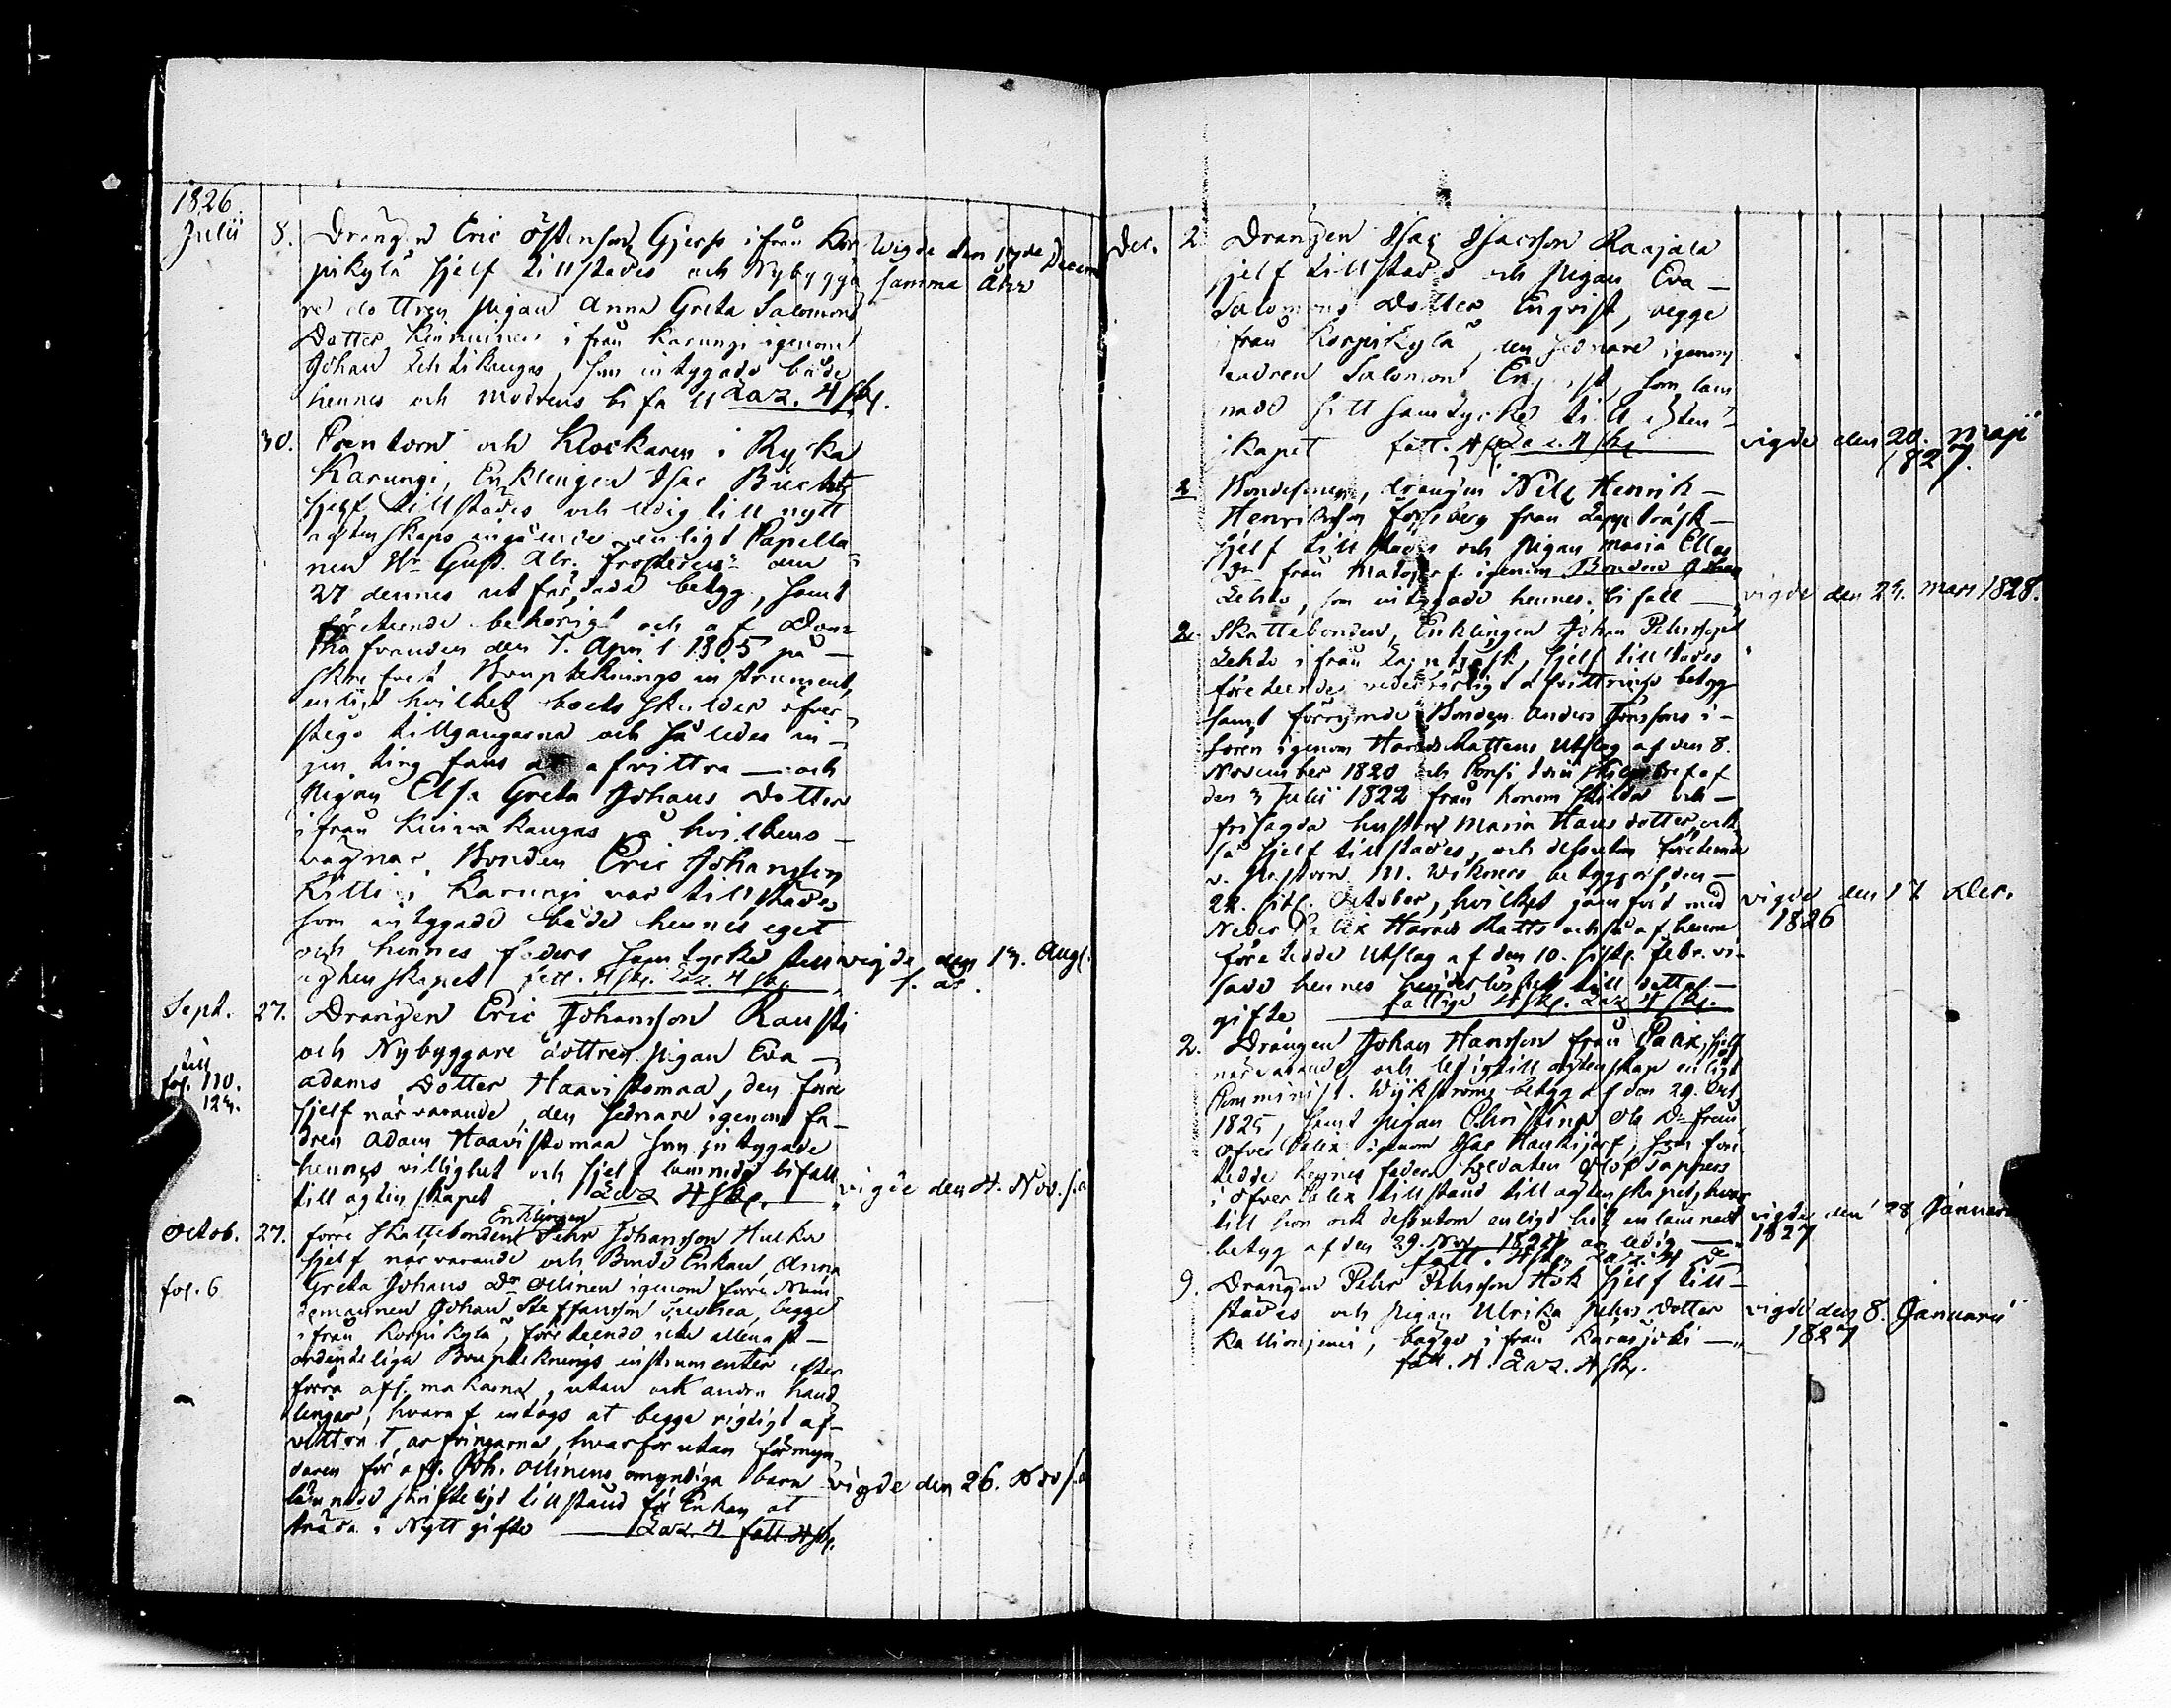 1826.
Julii 8. Drängen Eric Östensson Gjers ifrån Kor-
pikylä sjelf tillstädes och Nybygga-
re dottren pigan Anna Greta Salomons
Dotter Keimuinen ifrån Karungi igenom
Johan Lehtikangas, som intygade både
hennes och modrens bifall Laz. 4 sk.
Wigde den Decem
samma Åhr
30. Cantorn och Klockaren i Ryska
Karungi, Enklingen Isac Bucht
sjelf tillstädes och ledig till nytt
ägtenskaps ingående enligt Capella-
nen Hr Gust. Alr. Frosterus den
27 dennes utfärdade betyg, samt
företeende behörigt och af Dom-
hafvanden den 7. April 1805 på-
skrifvet Boupteknings instrument,
enligt hvilket boets skulder öfver-
stego tillgångarna och således in-
gen ting fans at afvittra — och
Pigan Elsa Greta Johans Dotter
ifrån Kuivakangas på hvilkens
vägnar Bonden Eric Johansson
Kitti i Karungi var tillstädes
som intygade både hennes eget
och hennes faders samtycke till
ägtenskapet fatt. 4 sk. Laz. 4 sk.
vigde den 13. Aug.
s. år.
Sept. 27. Drängen Eric Johansson Rausti
och Nybyggare dottren pigan Eva
Adams Dotter Haavistomaa, den förre
sjelf närvarande, den sednare igenom fa-
dren Adam Haavistomaa som intygade
hennes villighet och sjelf lemnade bifall
till ägtenskapet Laz 4 sk.
till
fol. 110.
123.
vigde den 4. Nov. s.a
Octob. 27. förre Skattebonden Enklingen Pehr Johansson Hulkr
sjelf närvarande och Bonde Enkan Anna
Greta Johans Dr Ollinen igenom förre Näm-
demannen Johan Steffansson begge
ifrån Korpikylä, företeende icke allenast
ordenteliga Bouptecknings instrumenter efter
förra afl. makarna, utan ock andra hand-
lingar, hvaraf intogs at begge rigtigt af-
vittrat arfvingarna, hvarförutan förmyn-
daren för afl. Joh. Ollinens omyndiga barn
lämnade skrifteligt tillstånd för Enkan at
träda i Nytt gifte Laz. 4 fatt. 4 sk.
fol. 6
vigde den 26. Nov s.a
Dec. 2 Drängen Isac Isacsson Raajala
sjelf tillstädes och pigan Eva
Salomons Dotter Enqvist, begge
ifrån Korpikylä, den sednare igenom
fadren Salomon Enqvist, som läm
nade sitt samtycke till ägten-
skapet fatt. 4 sk Laz. 4 sk.
vigde den 20. Maji
1827.
2 Bondesonen, drängen Nils Henrik
Henriksson Forsberg från Lappträsk
sjelf tillstädes och pigan Maria Elias
Dr från Matojerf igenom Bonden Johan
Lehto, som intygade hennes bifall
vigde den 24. Mars 1828.
2. Skattebonden, Enklingen Johan Pehrsson
Lehto ifrån Lappträsk, sjelf tillstädes
företeende vederbörligt afvittrings betyg
samt förrymde Bonden Anders Jönssons i-
från igenom Härads Rättens Utslag af den 8.
November 1820 och Consistorii skiljobref af
den 3 Julii 1822 från honom skilda och
frisagda hustru Maria Hans dotter, ock
så sjelf tillstädes, och dessutom företeende
v. Pastorn M. Wikners betyg af den
22. sistl. October, hvilket jämfördt med
Neder Calix Härads Rätts också af henne
företedde Utslag af den 10. sistl. Febr. vi-
sade hennes hinderlöshet till detta
gifte fattige 4 sk. Laz 4 sk.
vigde den 17 Dec.
1826
2. Drängen Johan Hansson från Calix, sjelf
närvarande och ledig till ägtenskap enligt
Comminist. Wijkströms betyg af den 29. Oct.
1825, samt pigan Christina Ols Dr från
Öfver Calix igenom Isac Haukijerf, som före
tedde hennes faders Soldaten Olof Täppers
i Öfver Calix tillstånd till ägtenskapet, hvar
till hon ock dessutom enligt hit inlämnadt
betyg af den 29. Nov 1825 är ledig
fatt. 4 sk. Laz. 4 d
vigde den 28 Januarii
1827
9. Drängen Pehr Pehrsson Hök sjelf till-
städes och pigan Ulrika Pehrs Dotter
Kallioniemi, begge ifrån Karasjoki
fatt. 4. Laz. 4 sk.
vigde den 8. Januarii
1827